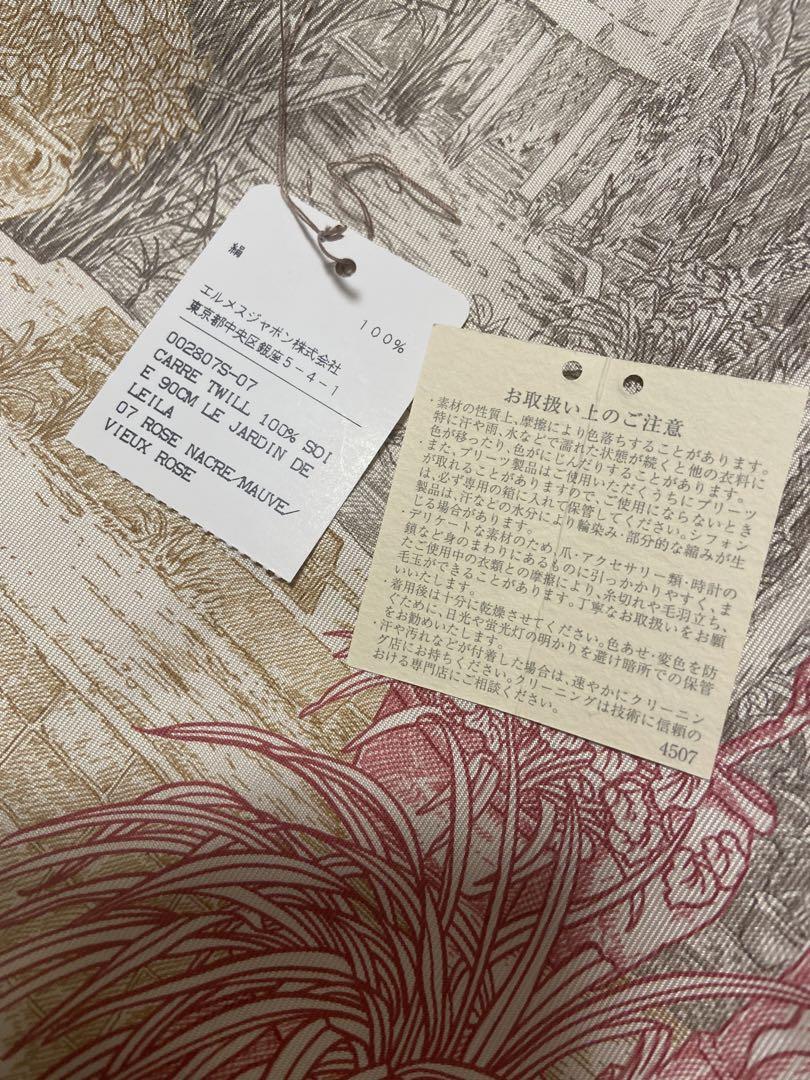 絹
100%
エルメスジャポン株式会社
東京都中央区銀座5-4-1
002807S-07
CARRE TWILL 100% SOI
E 90CM LE JARDIN DE
LEILA
07 ROSE NACRE/MAUVE/
VIEUX ROSE
お取扱い上のご注意
・素材の性質上、摩擦により色落ちすることがあります。
特に汗や雨、水などで濡れた状態が続くと他の衣料に
色が移ったり、色がにじんだりすることがあります。
・また、プリーツ製品はご使用いただくうちにプリーツ
が取れることがありますので、ご使用にならないとき
は、必ず専用の箱に入れて保管してください。シフォン
製品は、汗などの水分により輪染み・部分的な縮みが生
じる場合があります。
・デリケートな素材のため、爪・アクセサリー類・時計の
鎖など身のまわりにあるものに引っかかりやすく、ま
たご使用中の衣類との摩擦により、糸切れや毛羽立ち、
毛玉ができることがあります。丁寧なお取扱いをお願
いいたします。
・着用後は十分に乾燥させてください。色あせ・変色を防
ぐために、日光や蛍光灯の明かりを避け暗所での保管
をお勧めいたします。
・汗や汚れなどが付着した場合は、速やかにクリーニン
グ店にお持ちください。クリーニングは技術に信頼の
おける専門店にご相談ください。
4507